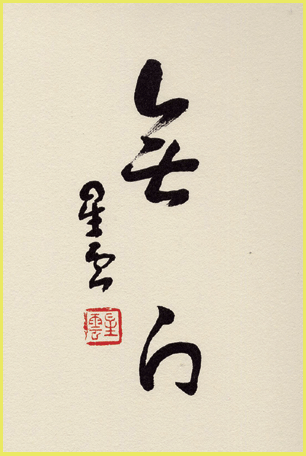 無門
星雲
星雲